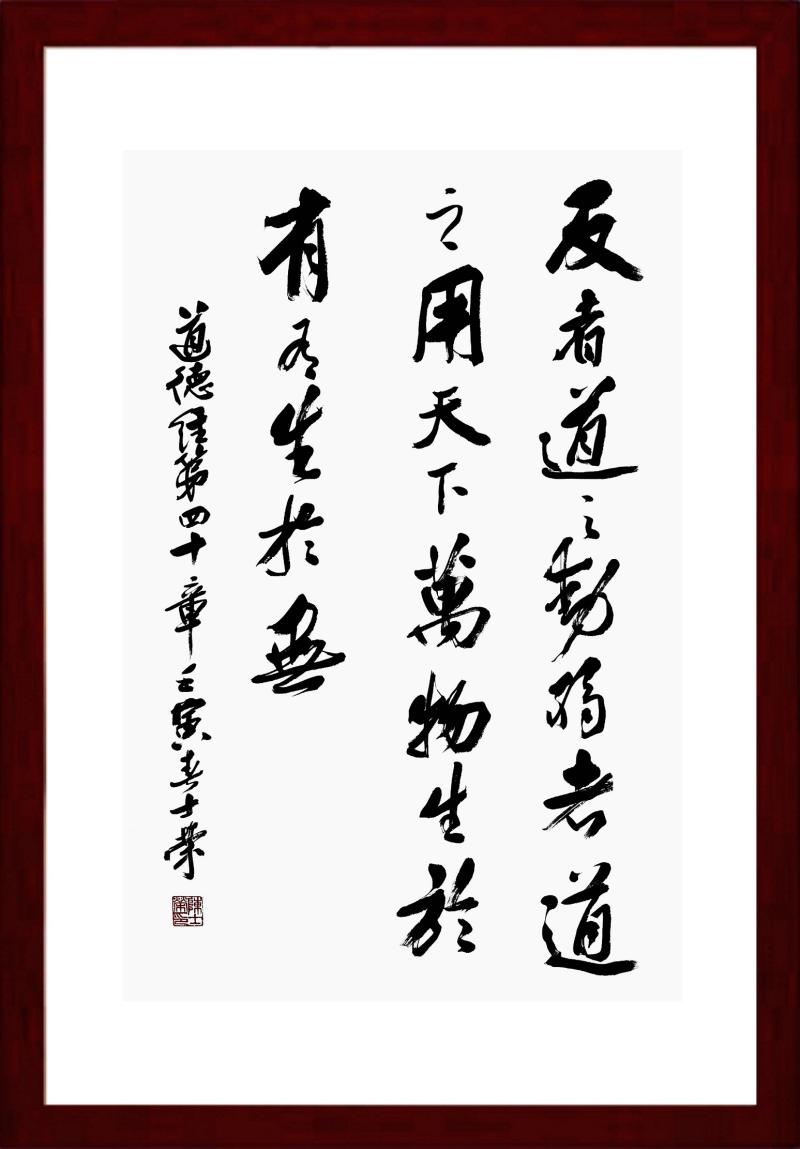 反者道之動弱者道
之用天下萬物生於
有有生於無
道德經第四十章壬寅春士荣
陳士榮印